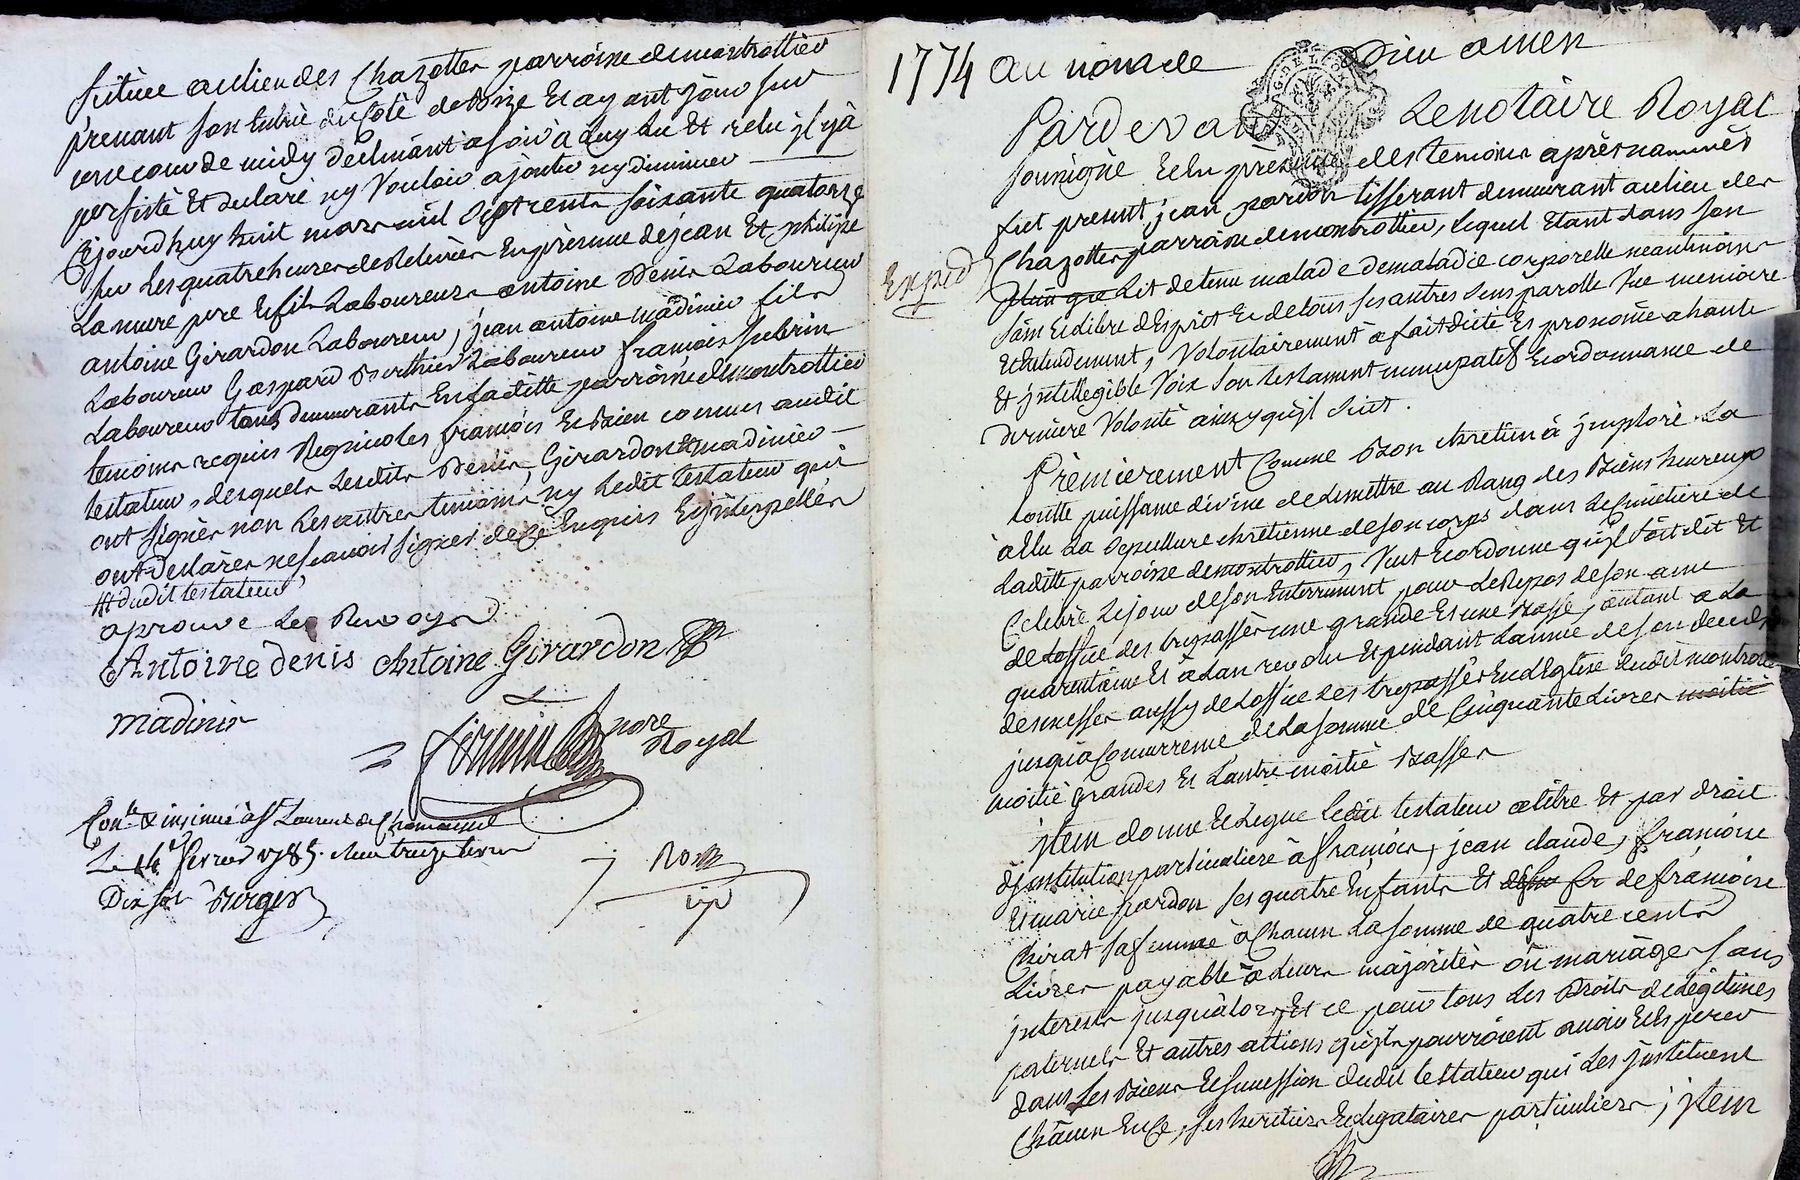 située au lieu des Chazottes parroisse de montrottier
prenant son Entrée du Coté de Bize Et ayant jour sur
une cour de midy declinant a soir a Luy Lu Et relu jl y à
persisté Et declaré ny Vouloir ajouter ny diminuer
Cejourd'huy huit mars mil Sept cents soixante quatorze
sur Les quatre heures de Relevée En presence de jean Et philipe
Lamure pere Et fils Laboureurs antoine Denis Laboureur
antoine Girardon Laboureur, jean antoine madinier fils
Laboureur Gaspard Berthier Laboureur francois
Laboureur tous demeurants En laditte parroisse de montrottier
temoins requis Regnicoles francois Et Bien connus audit
testateur, desquels Lesdits Denis, Girardon Et madinier
ont signés non Les autres temoins ny Ledit testateur qui
ont declarés ne scavoir signer de ce Enquis Et jnterpellés
dudit testateur
aprouve Les Renvoys
Antoine denis Antoine Girardon
madinier
nore
Royal
Con.lé & insinué à St Laurent de Chamousset
Le 14 fevrier 1785. Reçu treize livres
Dix sols Burger
1774 au nom de Dieu amen
Pardevant Le notaire Royal
soussigné Et En présence des temoins après nammés
fut present jean pardon tisserant demeurant au lieu des
Chazottes parroisse de montrottier, Lequel Etant dans son
Exped
Lit detenu malade de maladie corporelle neantmoins
sain Et Libre d'Esprit Et de tous ses autres sens parolle Vue memoire
Et Entendement, Volontairement a fait dicté Et prononcé a haute
Et jntellegible Voix son testament nuncupatif Et ordonnance de
derniere Volonté ainsy qu'jl suit.
Prèmierement Comme Bon chretien à jmploré La
toutte puissance divine de Le mettre au Rang des Biens heureux
à Elu La Sepulture chretienne de son corps dans Le Cimetiere de
Laditte parroisse de montrottier, Veut Et ordonne qu'jl soit dit Et
Celebré Le jour de son Enterrement pour Le Repos de son ame
de Loffice des trepassés une grande Et une Basse, autant a La
quarantaine Et à Lan revolu Et pendant Lannée de son decedz
de messes aussy de Loffice des trepassés En L'Eglise dudit montrottier
jusqu'a Concurrence de La somme de Cinquante Livres moitié
moitié grandes Et Lautre moitié Basses
jtem donne Et Legue Ledit testateur a titre Et par droit
d'jnstitution particuliere à francois, jean claude, francoise
Et marie pardon ses quatre Enfants Et de francoise
Chirat sa femme à Chacun La somme de quatre cents
Livres payable à Leurs majorités ou mariages sans
jnterests jusqu'alors Et ce pour tous Les Droits de Légitimes
paternels Et autres actions qu'jls pourroient avoir Et Esperer
dans Les Biens Et succession dudit testateur qui Les jnstituent
Chacun En Ce, ses heritiers Et Legataires particuliers; jtem